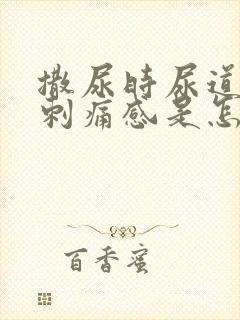 撒尿时尿道
刺痛感是怎
百香蜜